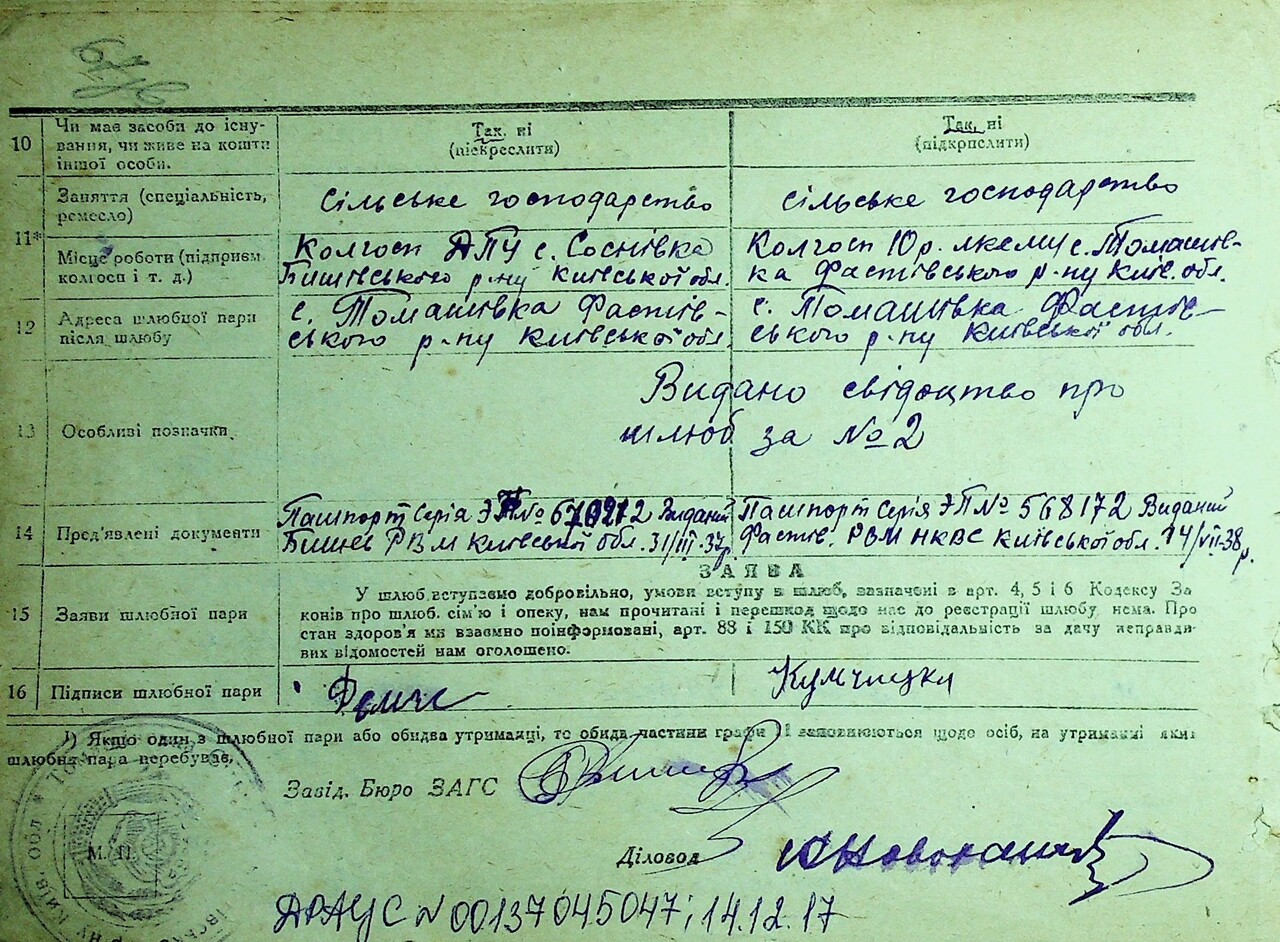 10 Чи має засоби до існу-
вання, чи живе на кошти
іншої особи.
Так, ні
(підкреслити)
Так, ні
(підкрпслити)
11* Заняття (спеціальність,
ремесло)
сільське господарство
сільське господарство
Місце роботи (підприєм.
колгосп і т. д.)
Колгосп ДПУ с. Соснівка
Бишівського р-ну Київської обл.
Колгосп 10 р. лксму с. Томашів-
ка Фастівського р-ну Київ. обл.
12 Адреса шлюбної пари
після шлюбу
с. Томашівка Фастів-
ського р-ну Київської обл.
с. Томашівка Фастів-
ського р-ну Київської обл.
13 Особливі позначки
Видано свідоцтво про
шлюб за № 2
14 Пред'явлені документи
Пашпорт серія № Виданий
Бишів РВМ Київської обл. 31/III-37р
Пашпорт серія ЭП № 568172 Виданий
Фастів. РВМ НКВС Київської обл. 14/VII-38р.
15 Заяви шлюбної пари
ЗАЯВА
У шлюб вступаємо добровільно, умови вступу в шлюб, зазначені в арт. 4, 5 і 6 Кодексу За
конів про шлюб. сім'ю і опеку, нам прочитані і перешкод щодо нас до реєстрації шлюбу нема. Про
стан здоров'я ми взаємно поінформовані, арт. 88 і 150 КК про відповідальність за дачу неправди-
вих відомостей нам оголошено.
16 Підписи шлюбної пари
Кульчицка
¹) Якщо один з шлюбної пари або обидва утриманці, то обидва частини графи 11 заповнюються щодо осіб, на утриманні яких
шлюбна пара перебуває.
Завід. Бюро ЗАГС
М. П.
Діловод
ДРАЦС N 00137045047; 14.12.17